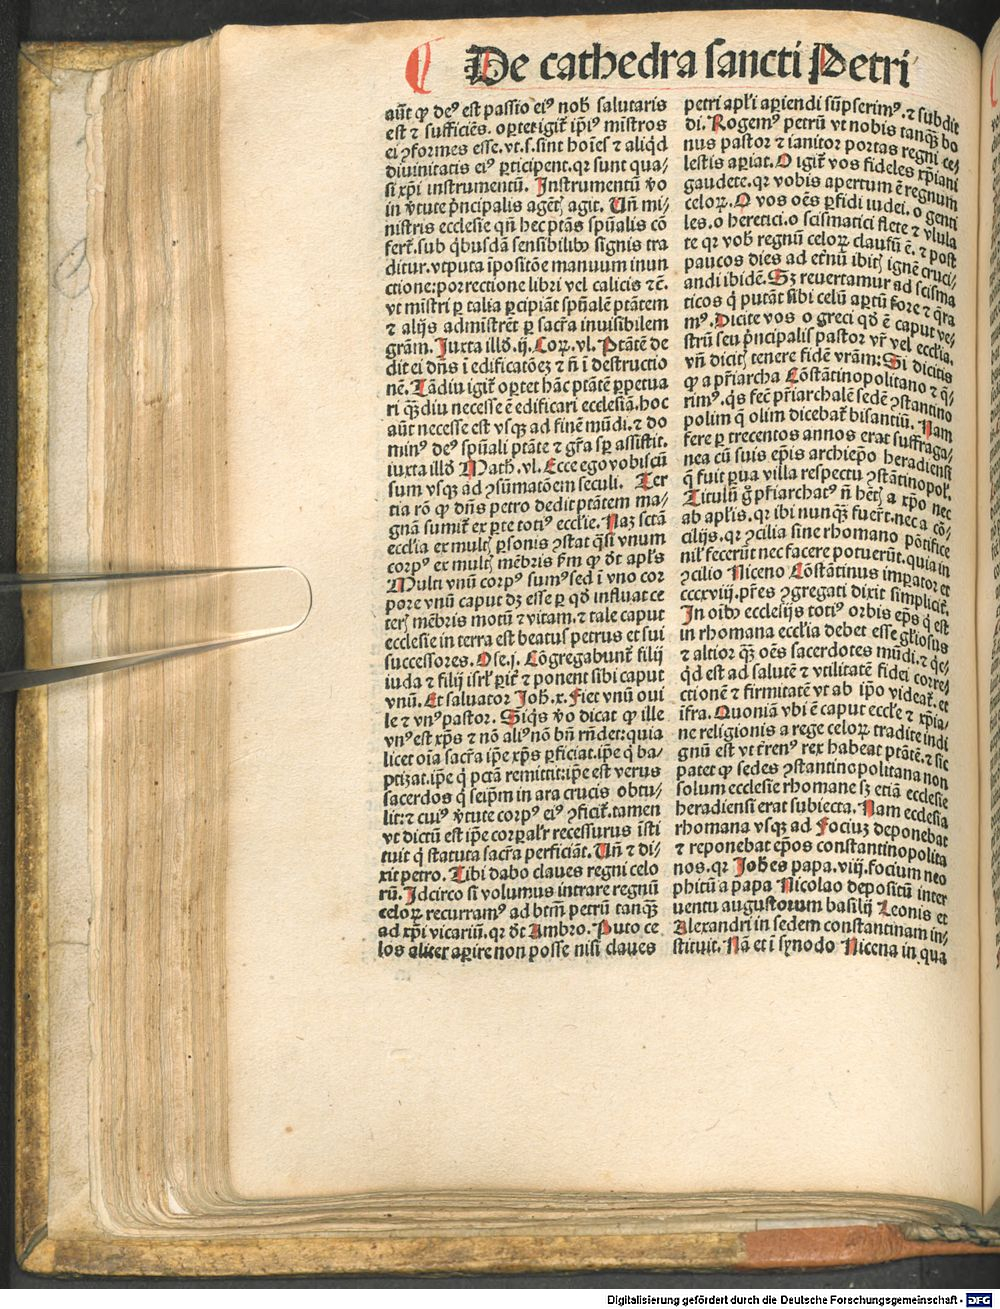 De cathedra sancti Petri
aūt ꝙ deꝰ est passio eiꝰ nob̄ salutaris
est ⁊ sufficiēs. oꝑtet igit̄ ip̄iꝰ mīstros
ei ꝯformes esse. vt .s. sint hoīes ⁊ aliq̄d
diuinitatis eiꝰ ꝑticipent. qr sunt qua⸗
si xp̄i instrumentū. Instrumentū v̄o
in v̄tute p̄ncipalis agētꝭ agit. Un̄ mi⸗
nistris ecclesie qn̄ hec ptās sp̄ualis cō
fert̄. sub q̇busdā sensibilibꝰ signis tra
ditur. vtputa īpositōe manuum inun
ctione: porrectione libri vel calicis ⁊c̄.
vt mīstri ꝑ talia ꝑcipiāt sp̄ualē ptātem
⁊ alijs admīstrēt ꝑ sacr̄a inuisibilem
grām. Juxta illō .ij. Coꝝ. vl. Ptātē de
dit ei dn̄s ī edificatōeꝫ ⁊ n̄ ī destructio
nē. Tādiu igit̄ oꝑtet hāc ptātē ꝑpetua
ri qꝫdiu necesse ē edificari ecclesiā. hoc
aūt necesse est vsqꝫ ad finē mūdi. ⁊ do
minꝰ deꝰ sp̄uali ptāte ⁊ gr̄a sp̄ assistit.
iuxta illō Math̄. vl. Ecce ego vobiscū
sum vsqꝫ ad ꝯsūmatōem seculi. Ter
tia rō ꝙ dn̄s petro dedit ptātem ma⸗
gnā sumit̄ ex ꝑte totiꝰ eccl̄ie. Naꝫ sctā
eccl̄ia ex multꝭ ꝑsonis ꝯstat q̄si vnum
corpꝰ ex multꝭ mēbris ẜm ꝙ dt̄ apl̄s
Multi vnū corpꝰ sumꝰ sed ī vno cor
pore vnū caput dꝫ esse ꝑ qd̄ influat ce
terꝭ mēbris motū ⁊ vitam. ⁊ tale caput
ecclesie in terra est beatus petrus et sui
successores. Ose. j. Cōgregabunt̄ filij
iuda ⁊ filij isrl̄ pit̄ ⁊ ponent sibi caput
vnū. Et saluator Joh̄. x. Fiet vnū oui
le ⁊ vnꝰ pastor. Siq̇s v̄o dicat ꝙ ille
vnꝰ est xp̄s ⁊ nō aliꝰ nō bn̄ rn̄det: quia
licet oīa sacr̄a ip̄e xp̄s ꝑficiat. ip̄e q̇ ba⸗
ptizat. ip̄e q̇ pctā remittit: ip̄e est verus
sacerdos q̇ seip̄m in ara crucis obtu⸗
lit: ⁊ cuiꝰ v̄tute corpꝰ eiꝰ ꝯficit̄. tamen
vt dictū est ip̄e corꝑalr̄ recessurus īsti
tuit q̇ statuta sacr̄a perficiāt. Un̄ ⁊ di⸗
xit petro. Tibi dabo claues regni celo
rū. Idcirco si volumus intrare regnū
celoꝝ recurramꝰ ad btm̄ petrū tanqꝫ
ad xp̄i vicariū. qr dt̄ Ambro. Puto ce
los aliter aꝑire non posse nisi claues
petri apl̄i aꝑiendi sūpserimꝰ. ⁊ subdit
di. Rogemꝰ petrū vt nobis tanqꝫ bo
nus pastor ⁊ ianitor portas regni ce⸗
lestis aꝑiat. O igit̄ vos fideles xp̄iani
gaudete. qr vobis apertum ē regnum
celoꝝ. O vos oēs ꝑfidi iudei. o genti
les. o heretici. o scismatici flete ⁊ vlula
te qr vob̄ regnū celoꝝ clausū ē. ⁊ post
paucos dies ad et̄nū ibitꝭ ignē cruci⸗
andi ibidē. Sꝫ reuertamur ad scisma
ticos q̇ putāt sibi celū aꝑtū fore ⁊ q̄ra
mꝰ. Dicite vos o greci qd̄ ē caput ve⸗
strū seu p̄ncipalis pastor vr̄ vel eccl̄ia.
vn̄ dicitꝭ tenere fidē vrām: Si dicitis
ꝙ a pr̄iarcha Cōstātinopolitano ⁊ q̄⸗
rimꝰ. q̇s fec̄ pr̄iarchalē sedē ꝯstantino
polim q̄ olim dicebat̄ bisantiū. Nam
fere ꝑ trecentos annos erat suffraga⸗
nea cū suis ep̄is archiep̄o heradiensi
q̄ fuit ꝑua villa respectu ꝯstātinopol̄.
Titulū g̊ pr̄iarchatꝰ n̄ hētꝭ a xp̄o nec
ab apl̄is. qr ibi nunqꝫ fuer̄t. nec a cō⸗
cilijs. qr ꝯcilia sine rhomano pōtifice
nil̄ fecerūt nec facere potuerūt. quia in
ꝯcilio Niceno Cōstātinus imꝑator et
cccxviij. pr̄es ꝯgregati dixit simplicit̄.
In oībꝰ ecclesijs totiꝰ orbis ep̄s q̇ est
in rhomana eccl̄ia debet esse gl̄iosus
⁊ altior qꝫ oēs sacerdotes mūdi. ⁊ qc̄⸗
q̇d est ad salutē ⁊ vtilitatē fidei corre⸗
ctionē ⁊ firmitatē vt ab ip̄o videat̄. et
īfra. Quoniā vbi ē caput eccl̄e ⁊ xp̄ia⸗
ne religionis a rege celoꝝ tradite indi
gnū est vt t̄renꝰ rex habeat ptātē. ⁊ sic
patet ꝙ sedes ꝯstantinopolitana non
solum ecclesie rhomane sꝫ etiā ecclesie
heradiensi erat subiecta. Nam ecclesia
rhomana vsqꝫ ad Fociuꝫ deponebat
⁊ reponebat ep̄os constantinopolita
nos. qr Joh̄es papa. viij. focium neo
phitū a papa Nicolao depositū inter
uentu augustorum basilij Leonis et
Alexandri in sedem constantinam in⸗
stituit. Nā et ī synodo Nicena in qua
Digitalisierung gefördert durch die Deutsche Forschungsgemeinschaft - DFG